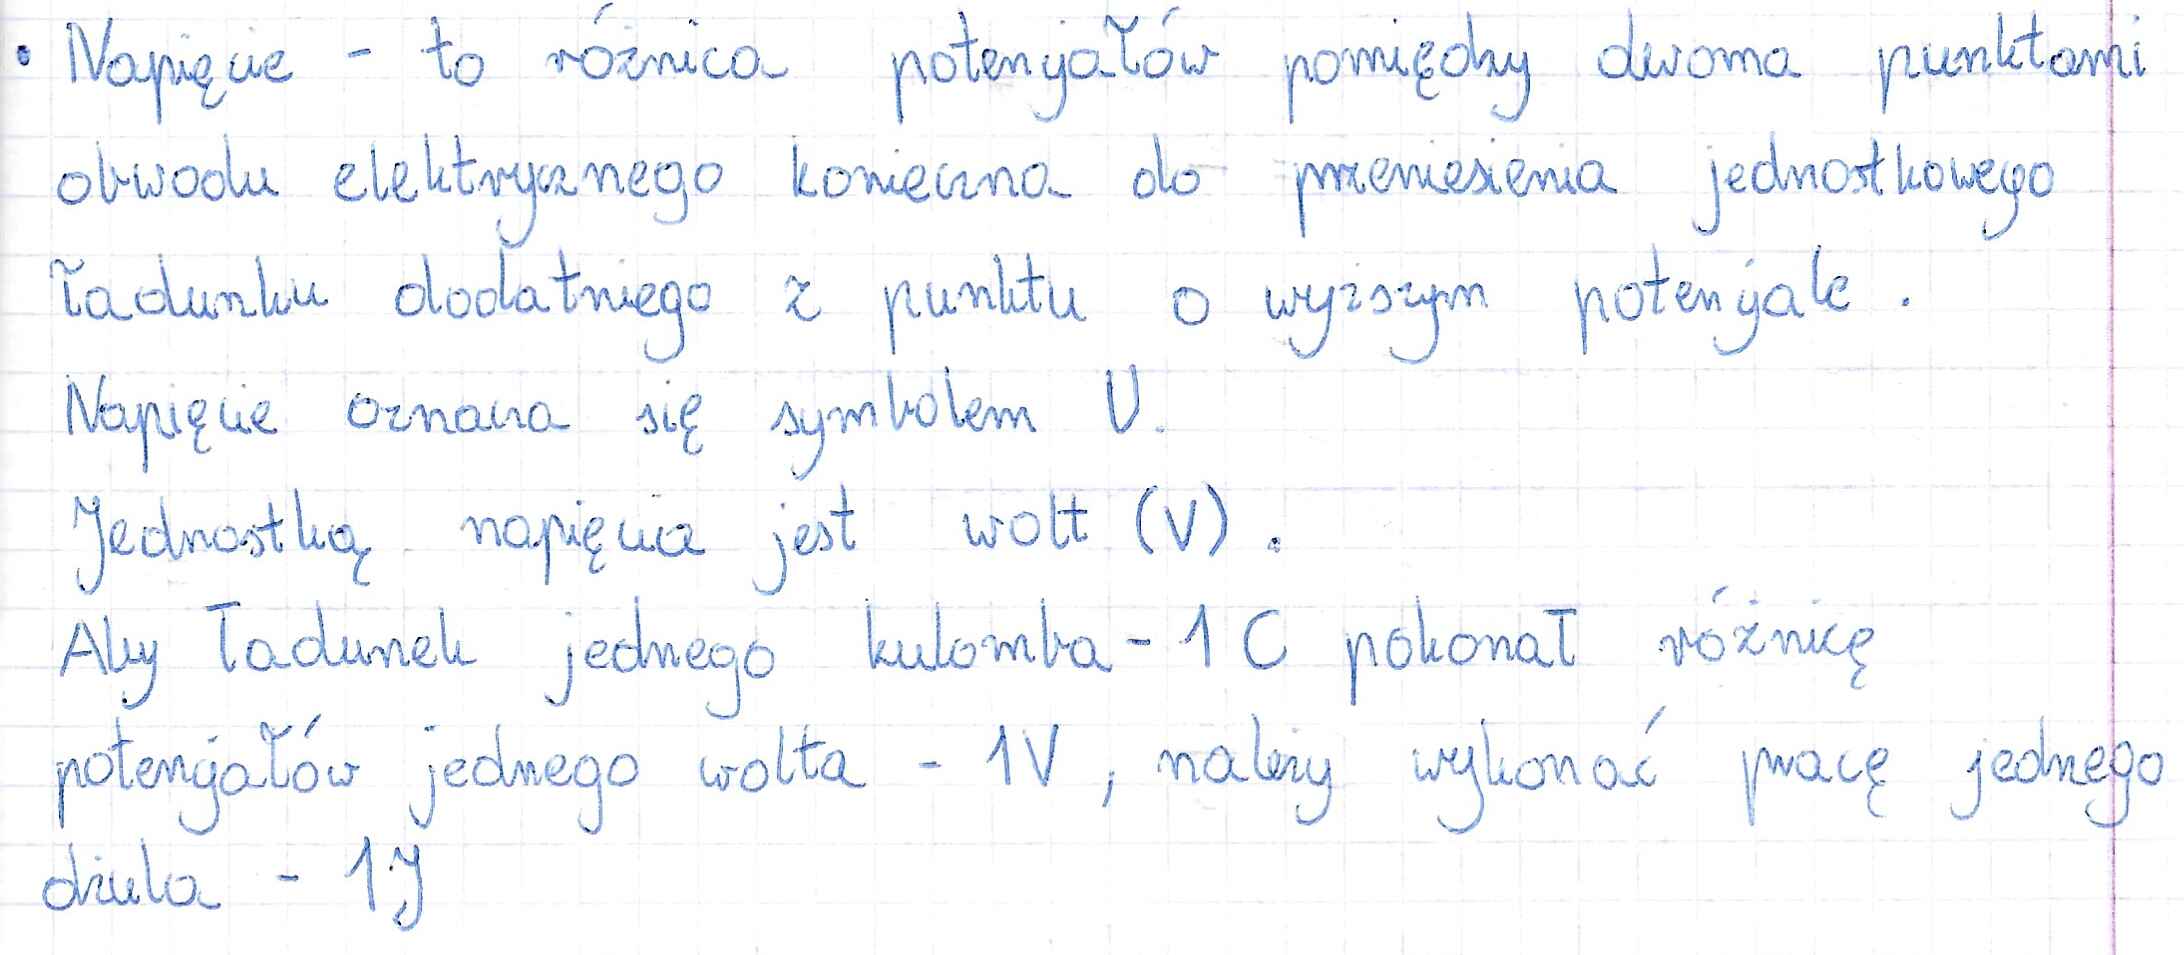 • Napięcie - to różnica potencjałów pomiędzy dwoma punktami
obwodu elektrycznego konieczna do przeniesienia jednostkowego
ładunku dodatniego z punktu o wyższym potencjale.
Napięcie oznacza się symbolem U.
Jednostką napięcia jest wolt (V).
Aby ładunek jednego kulomba - 1 C pokonał różnicę
potencjałów jednego wolta - 1V, należy wykonać pracę jednego
dżula - 1J